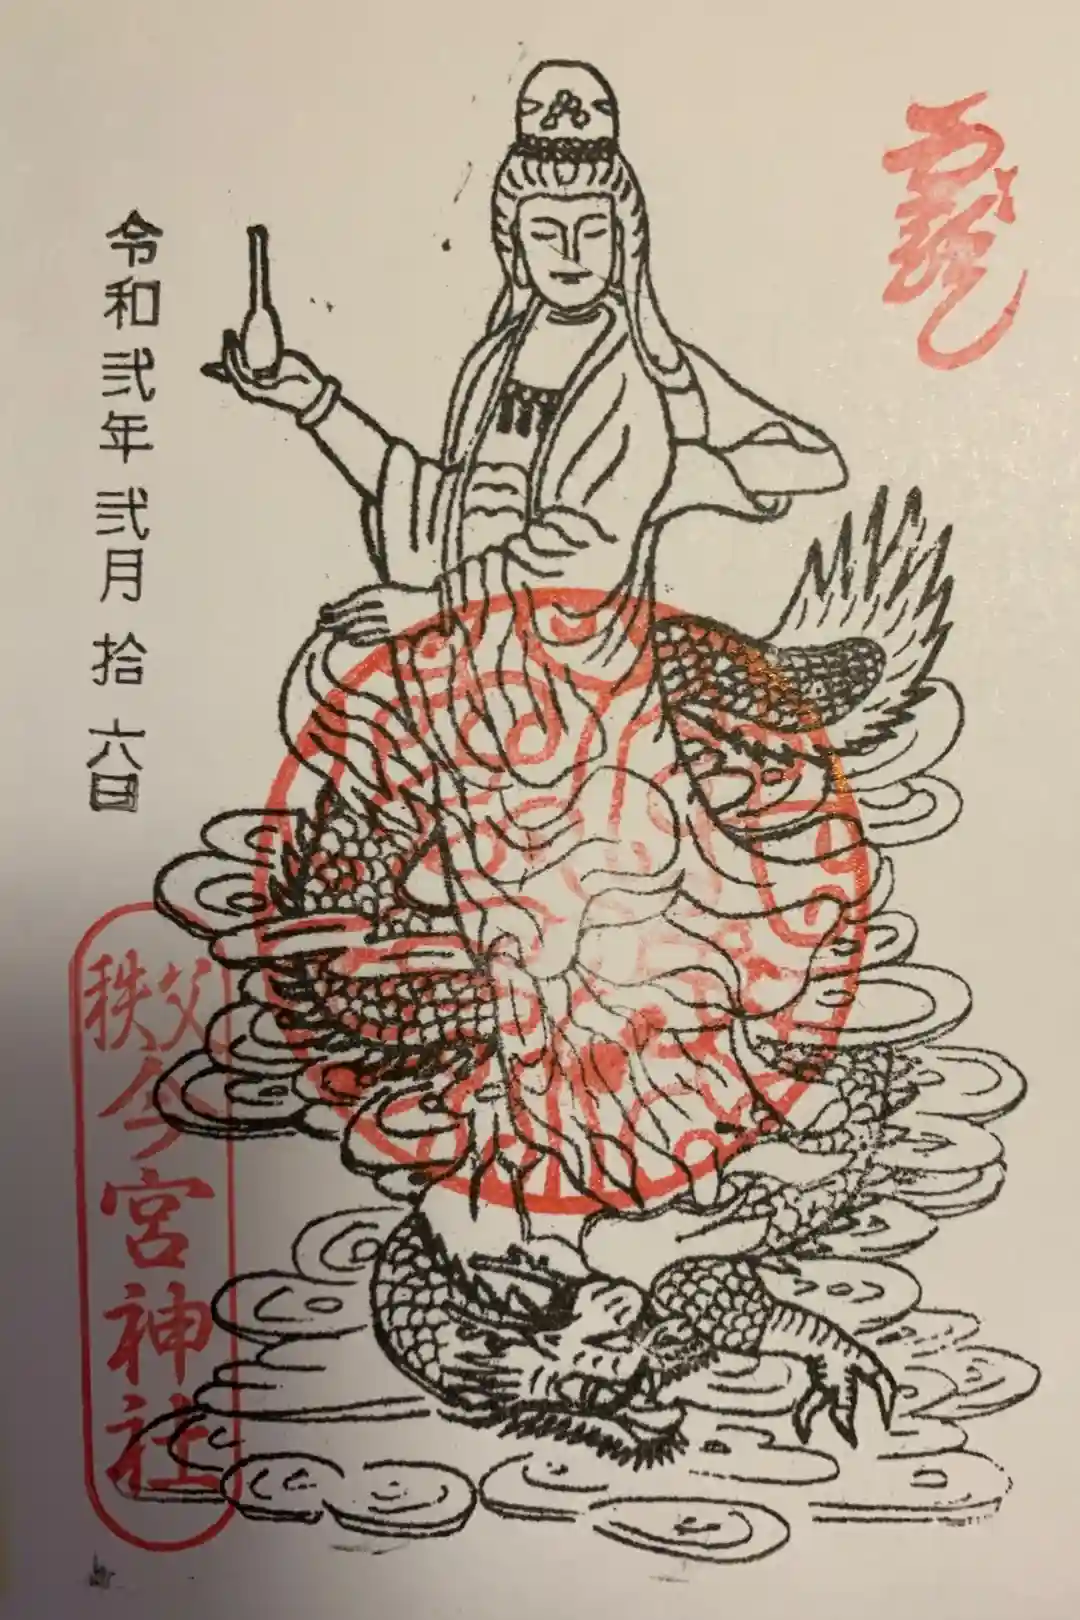 龍
令和弐年弐月拾六日
秩父今宮神社